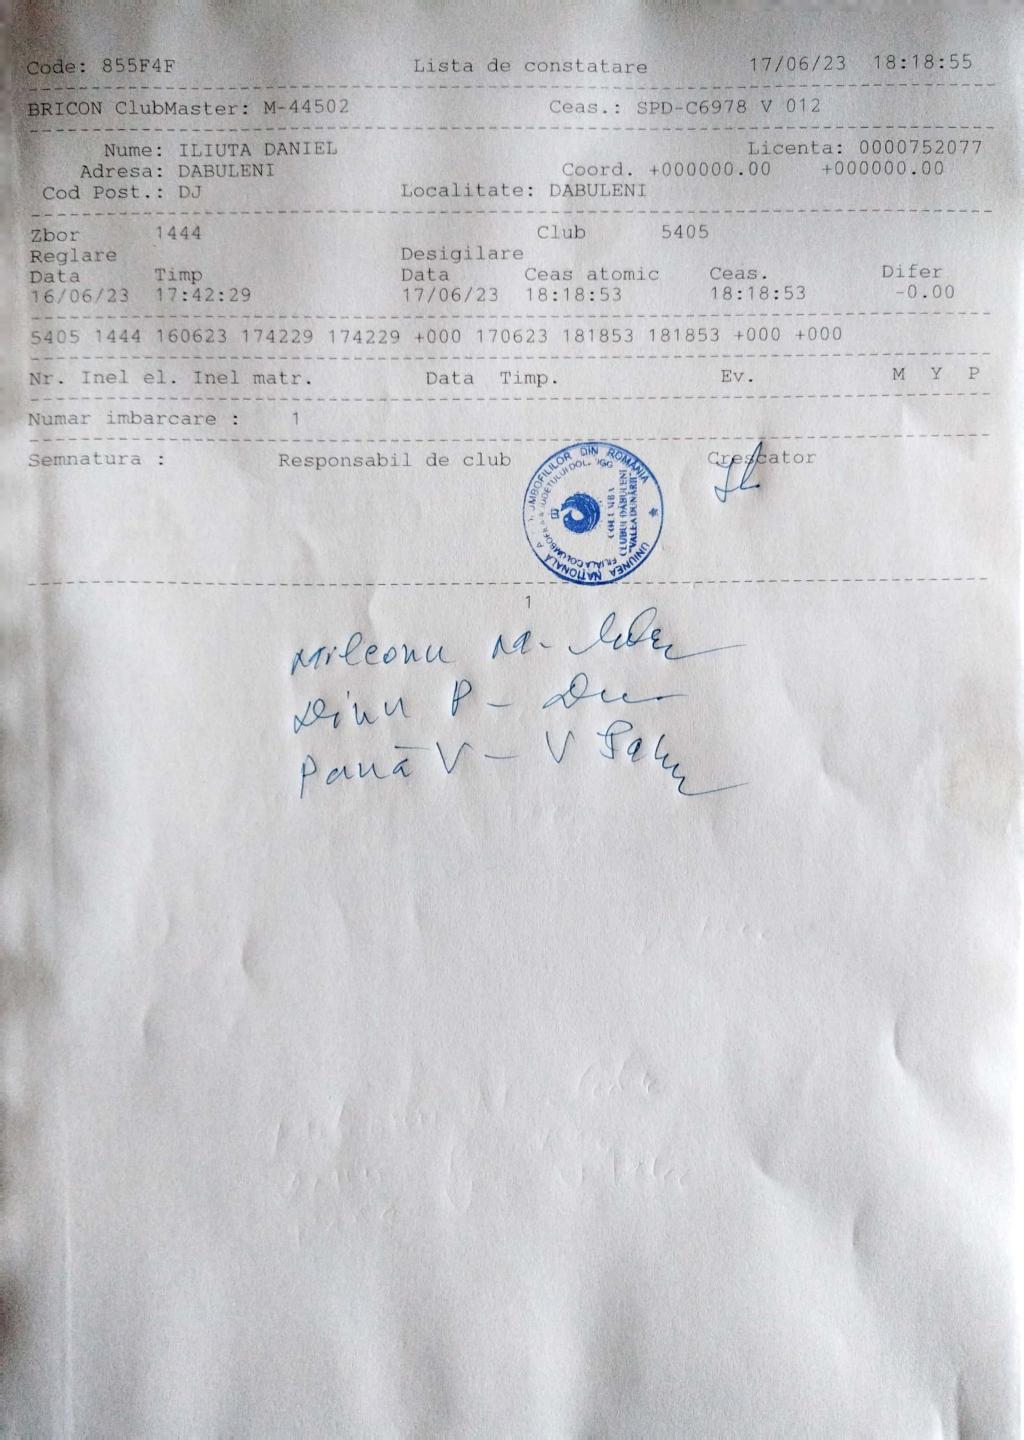 Code: 855F4F Lista de constatare 17/06/23 18:18:55
BRICON ClubMaster: M-44502 Ceas.: SPD-C6978 V 012
Nume: ILIUTA DANIEL Licenta: 0000752077
Adresa: DABULENI Coord. +000000.00 +000000.00
Cod Post.: DJ Localitate: DABULENI
Zbor 1444 Club 5405
Reglare Desigilare
Data Timp Data Ceas atomic Ceas. Difer
16/06/23 17:42:29 17/06/23 18:18:53 18:18:53 -0.00
5405 1444 160623 174229 174229 +000 170623 181853 181853 +000 +000
Nr. Inel el. Inel matr. Data Timp. Ev. M Y P
Numar imbarcare : 1
Semnatura : Responsabil de club Crescator
UNIUNEA NAȚIONALA A DIN ROMÂNIA
COLUMBA
CLUBUL DĂBULENI
"VALEA DUNĂRII"
1
Milconu M-
Dinu P -
Pană V - V